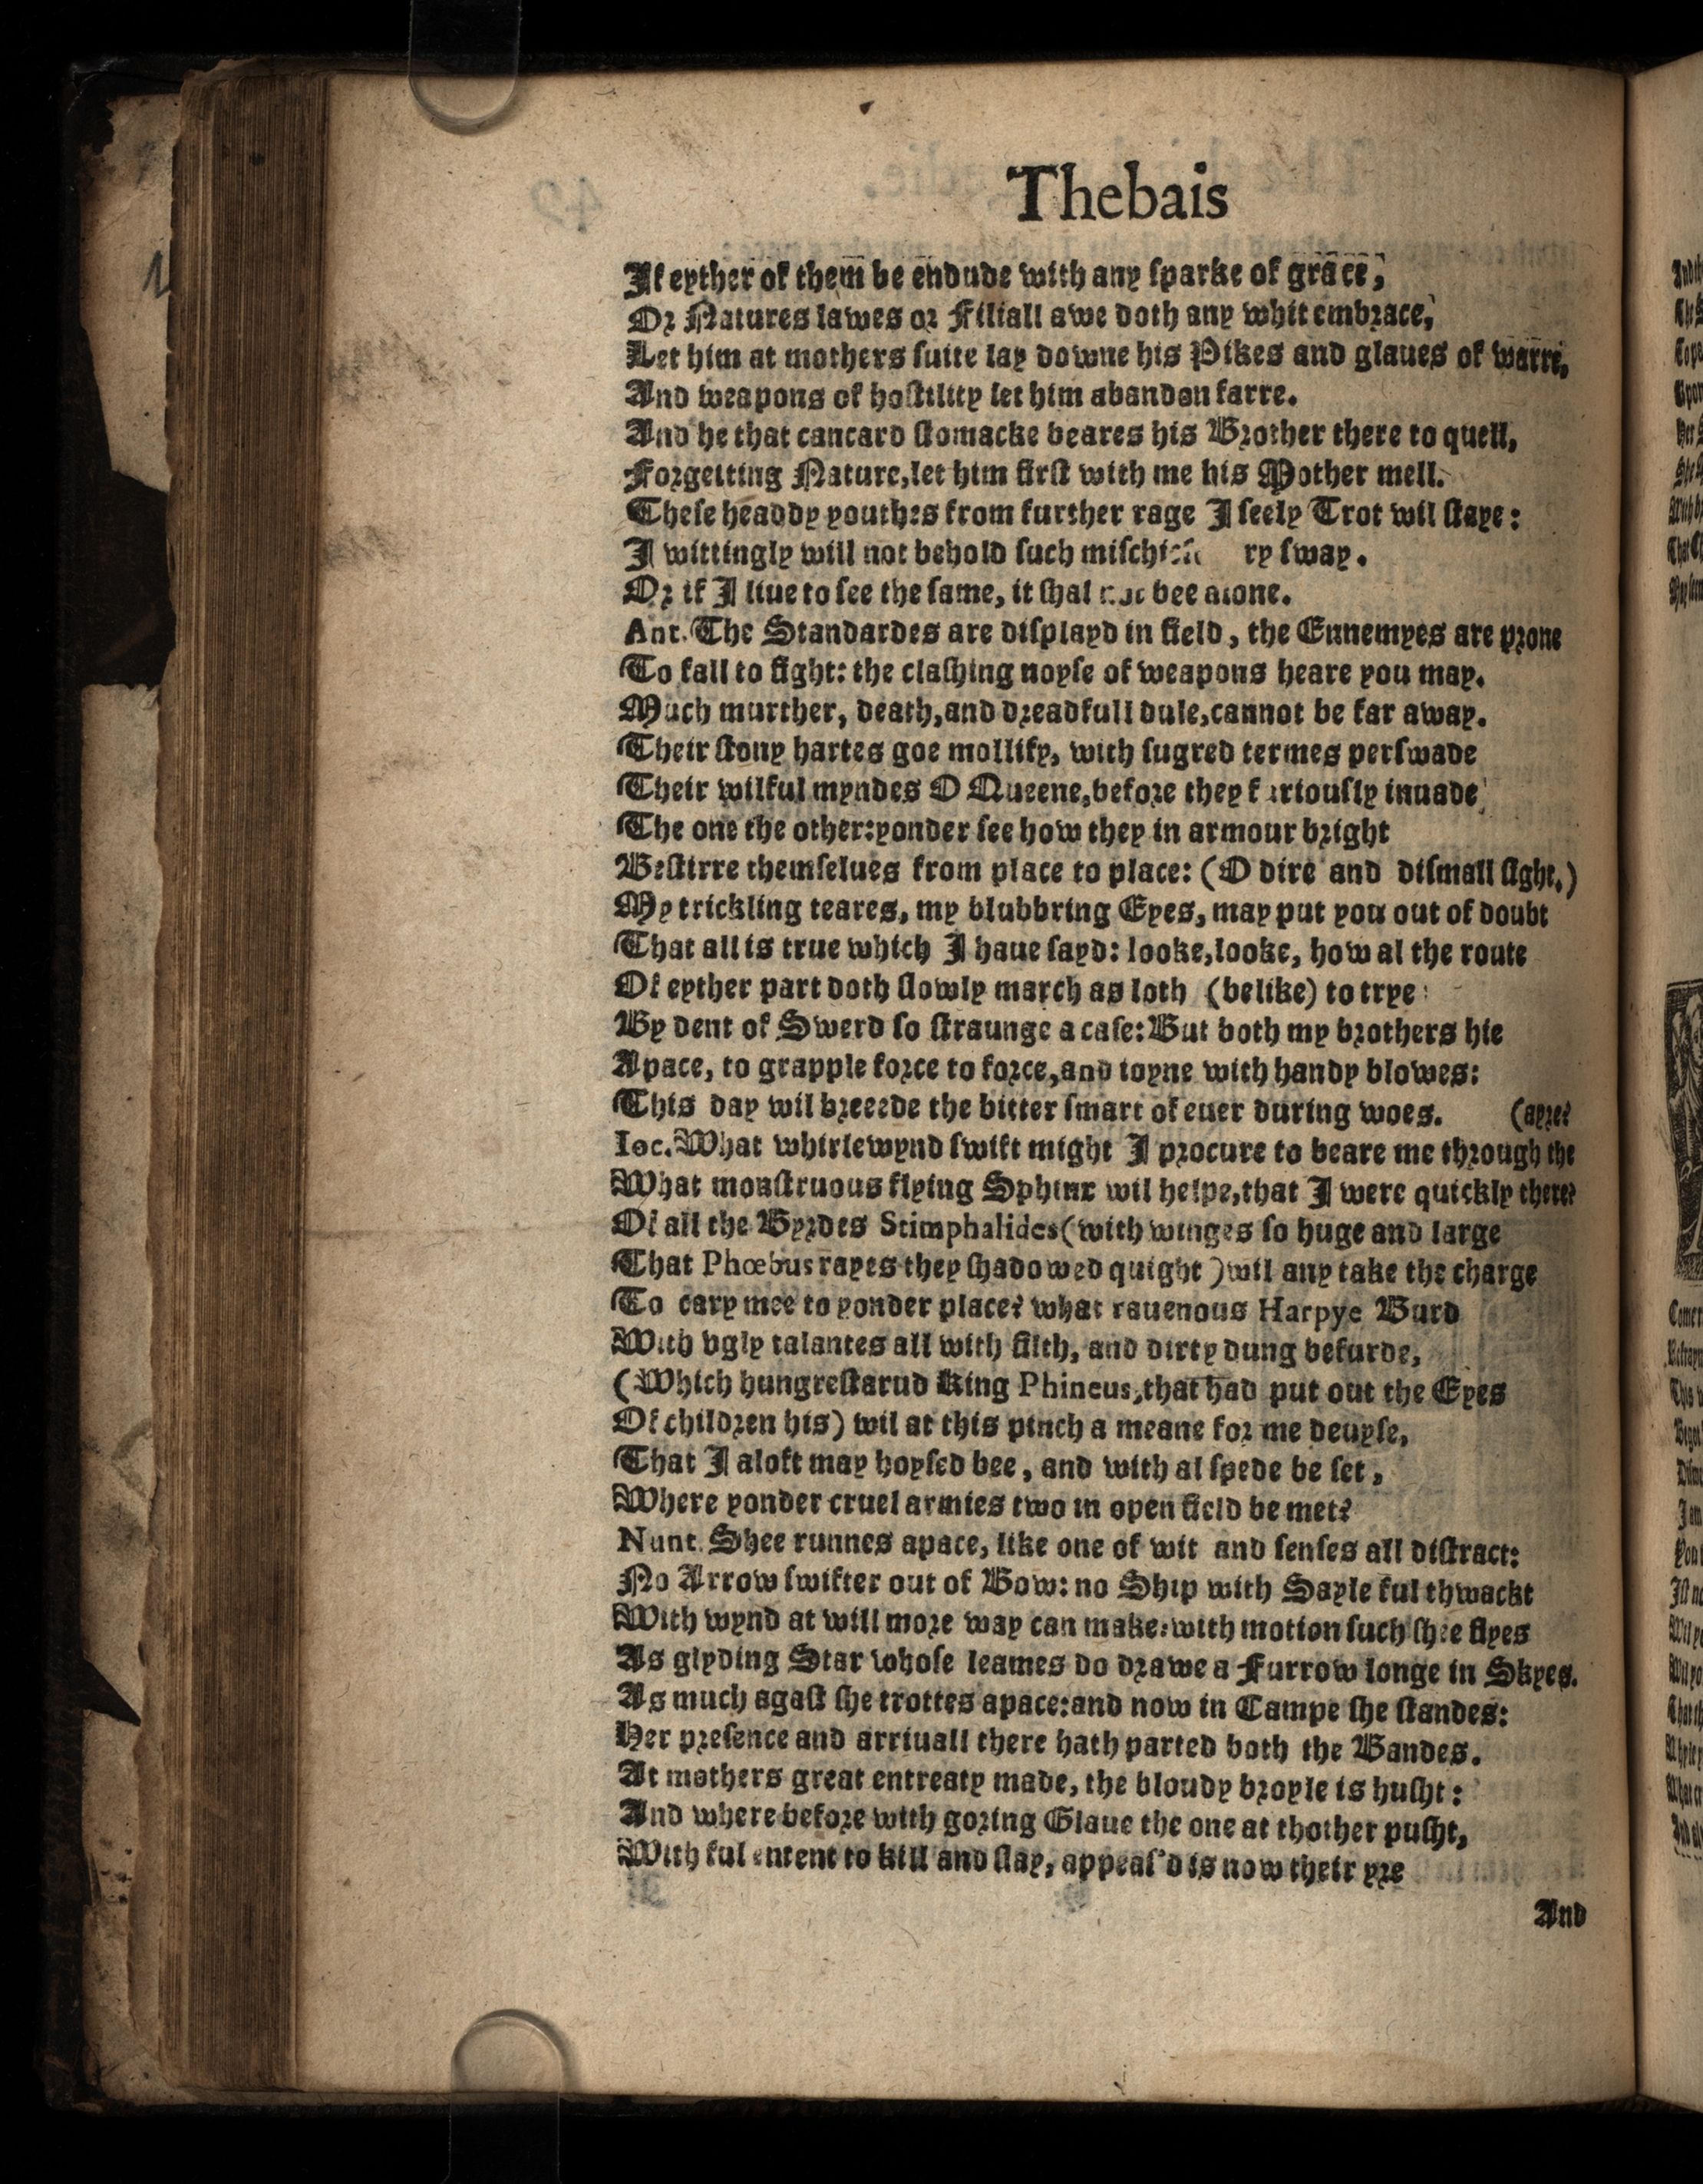 Thebais
If eyther of them be endude with any sparke of grace,
Or Natures lawes or Filiall awe doth any whit embrace,
Let him at mothers suite lay downe his Pikes and glaues of warre,
And weapons of hostility let him abandon farre.
And he that cancard stomacke beares his Brother there to quell,
Forgetting Nature, let him first with me his Mother mell.
These headdy youthes from further rage I seely Trot wil staye:
I wittingly will not behold such ry sway.
Or if I liue to see the same, it shal not bee alone.
Ant. The Standardes are displayd in field, the Ennemyes are prone
To fall to fight: the clashing noyse of weapons heare you may.
Much murther, death, and dreadfull dule, cannot be far away.
Their stony hartes goe mollify, with sugred termes perswade
Their wilful myndes O Queene, before they furiously inuade
The one the other: yonder see how they in armour bright
Bestirre themselues from place to place: (O dire and dismall sight.)
My trickling teares, my blubbring Eyes, may put you out of doubt
That all is true which I haue sayd: looke, looke, how al the route
Of eyther part doth slowly march as loth (belike) to trye
By dent of Swerd so straunge a case: But both my brothers hie
Apace, to grapple force to force, and ioyne with handy blowes:
This day wil breeede the bitter smart of euer during woes. (ayre?
Ioc. What whirlewynd swift might I procure to beare me through the
What monstruous flying Sphinx wil helpe, that I were quickly there?
Of all the Byrdes Stimphalides (with winges so huge and large
That Phœbus rayes they shadowed quight) wil any take the charge
To cary mee to yonder place? what rauenous Harpye Burd
With vgly talantes all with filth, and dirty dung befurde,
(Which hungrestarud King Phineus, that had put out the Eyes
Of children his) wil at this pinch a meane for me deuyse,
That I aloft may hoysed bee, and with al spede be set,
Where yonder cruel armies two in open field be met?
Nunt. Shee runnes apace, like one of wit and senses all distract:
No Arrow swifter out of Bow: no Ship with Sayle ful thwackt
With wynd at will more way can make: with motion such shee flyes
As glyding Star whose leames do drawe a Furrow longe in Skyes.
As much agast she trottes apace: and now in Campe she standes:
Her presence and arriuall there hath parted both the Bandes.
At mothers great entreaty made, the bloudy broyle is husht:
And where before with goring Glaue the one at thother pusht,
With ful entent to kill and slay, appeas'd is now their yre
And